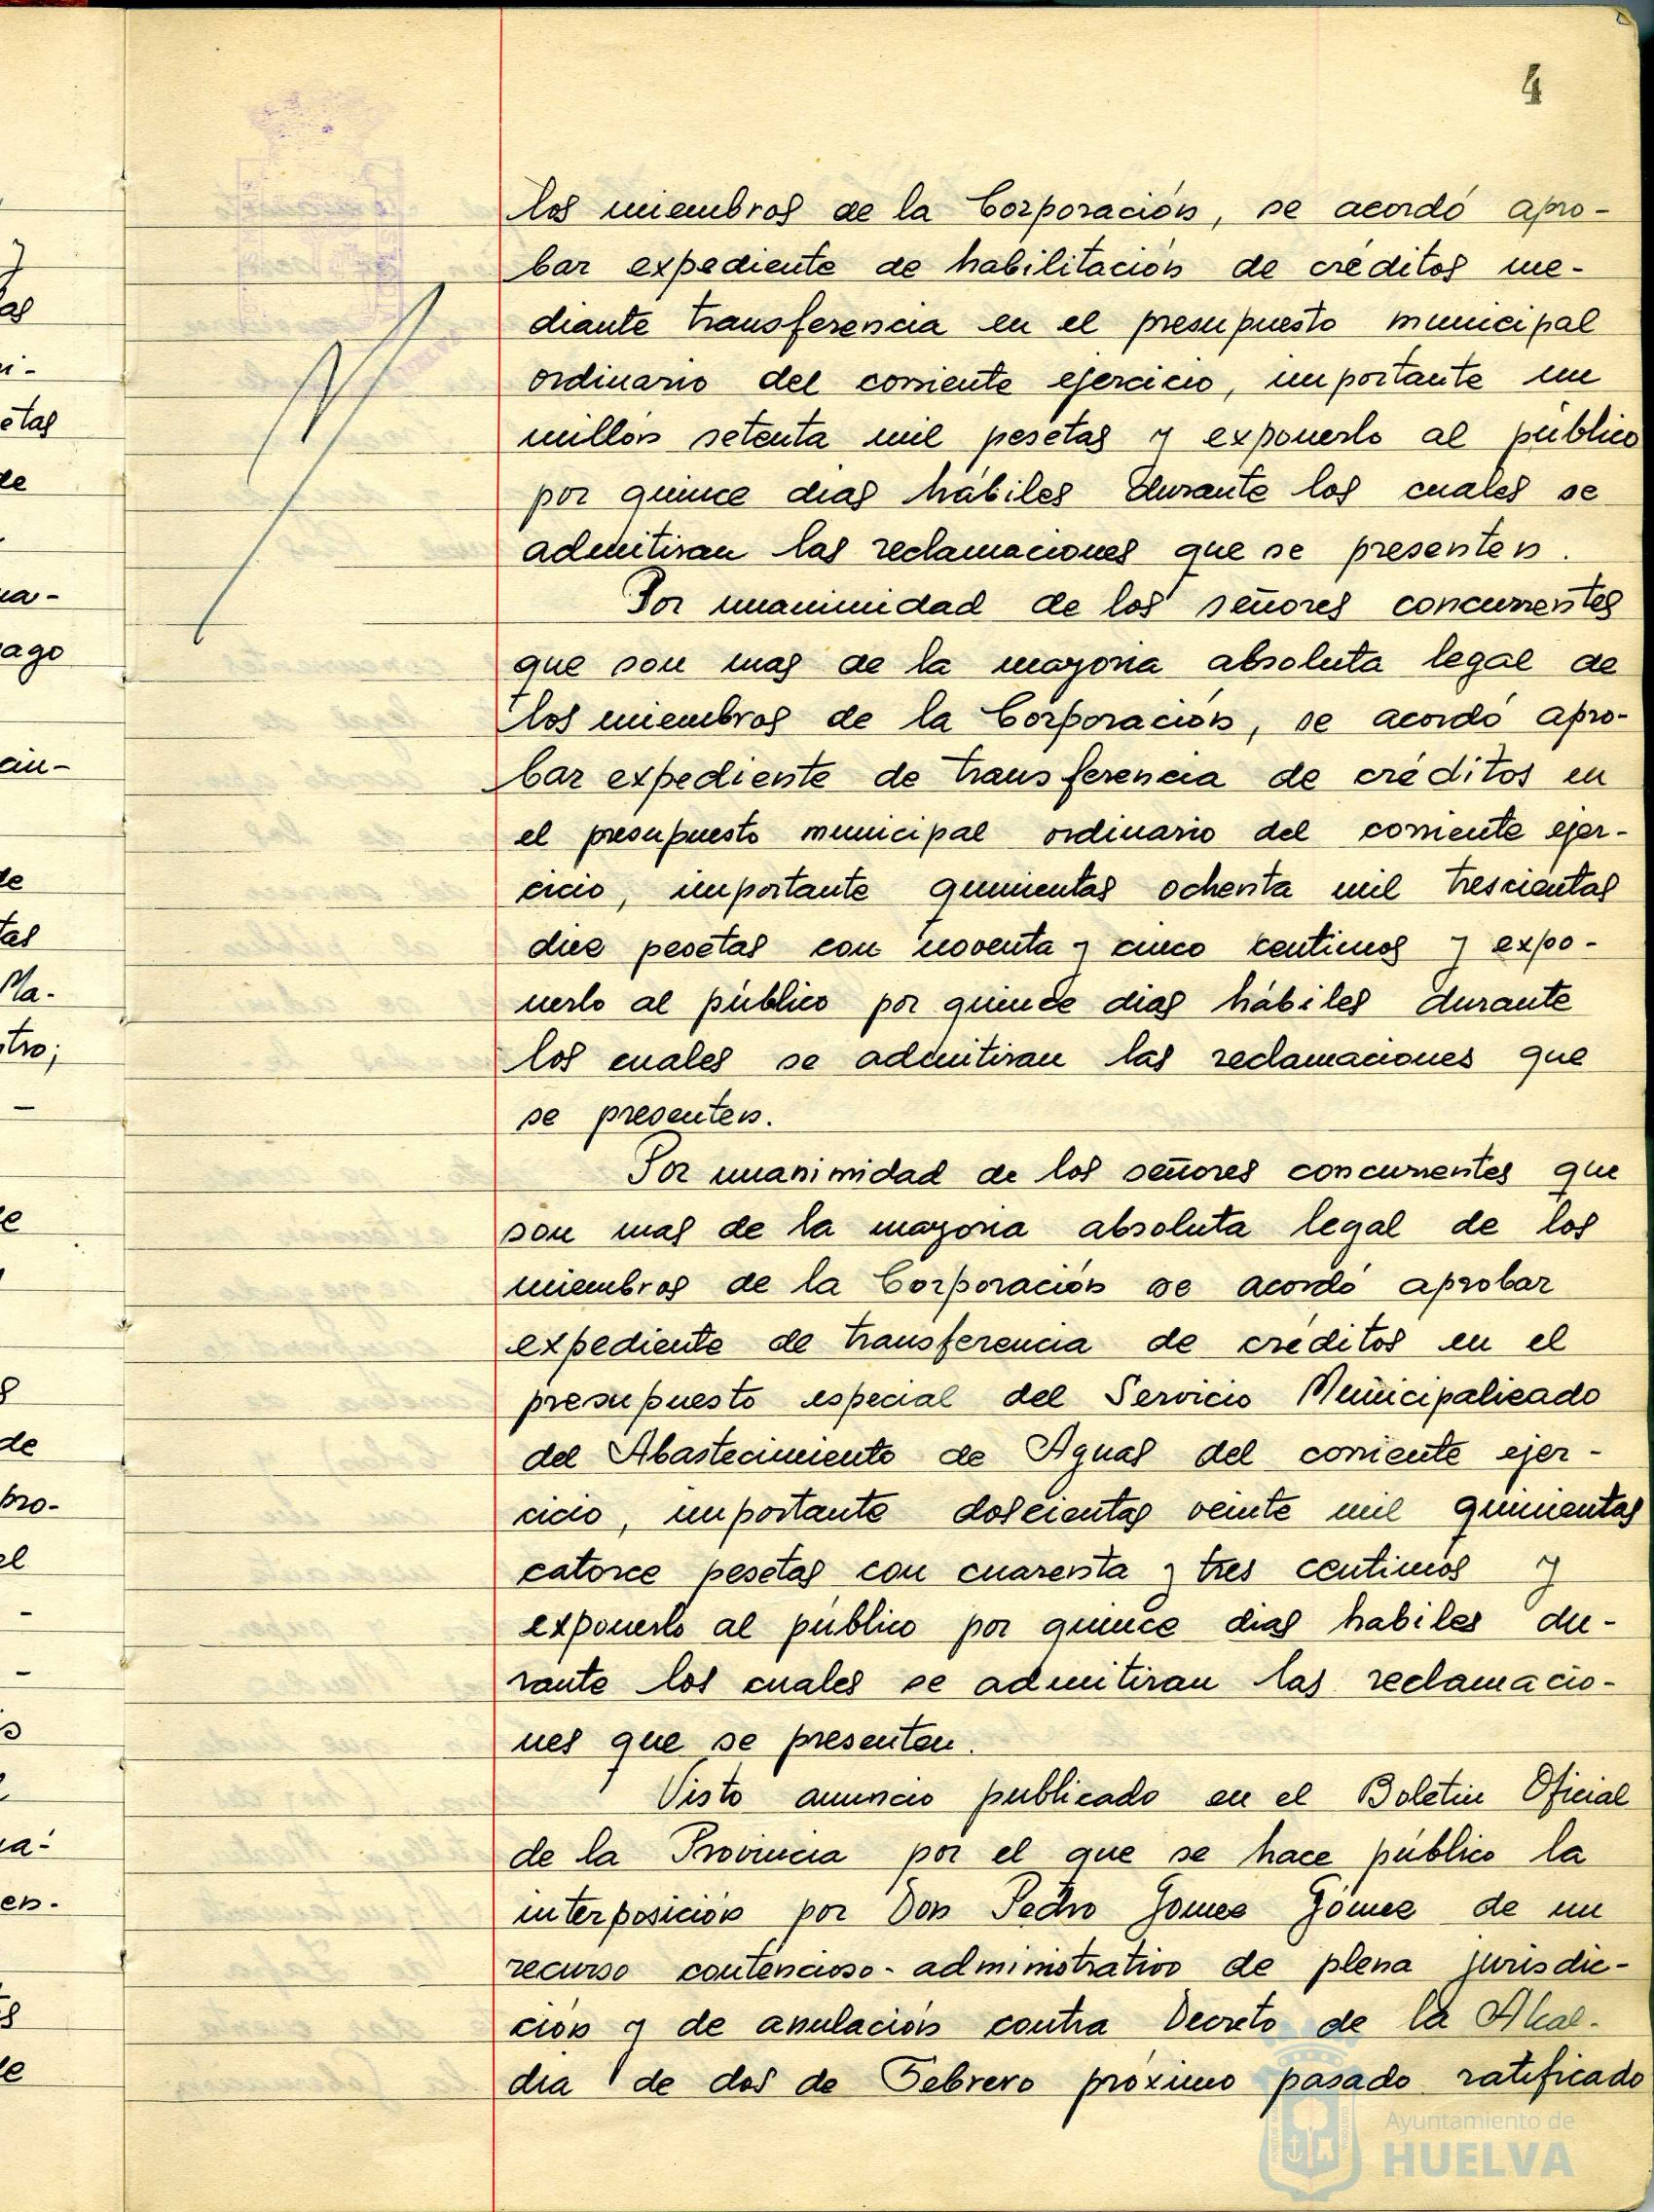 4
los miembros de la Corporación, se acordó apro-
bar expediente de habilitación de créditos me-
diante transferencia en el presupuesto municipal
ordinario del corriente ejercicio, importante un
millón setenta mil pesetas y exponerlo al público
por quince dias hábiles durante los cuales se
admitiran las reclamaciones que se presenten.
Por unanimidad de los señores concurrentes
que son mas de la mayoria absoluta legal de
los miembros de la Corporación, se acordó apro-
bar expediente de transferencia de créditos en
el presupuesto municipal ordinario del corriente ejer-
cicio, importante quinientas ochenta mil trescientas
diez pesetas con noventa y cinco centimos y expo-
nerlo al público por quince dias hábiles durante
los cuales se admitiran las reclamaciones que
se presenten.
Por unanimidad de los señores concurrentes que
son mas de la mayoria absoluta legal de los
miembros de la Corporación se acordó aprobar
expediente de transferencia de créditos en el
presupuesto especial del Servicio Municipalizado
del Abastecimiento de Aguas del corriente ejer-
cicio, importante doscientas veinte mil quinientas
catorce pesetas con cuarenta y tres centimos y
exponerlo al público por quince dias habiles du-
rante los cuales se admitiran las reclamacio-
nes que se presenten.
Visto anuncio publicado en el Boletin Oficial
de la Provincia por el que se hace público la
interposición por Don Pedro Gomez Gómez de un
recurso contencioso-administrativo de plena jurisdic-
ción y de anulación contra Decreto de la Alcal-
dia de dos de Febrero próximo pasado ratificado
Ayuntamiento de
HUELVA